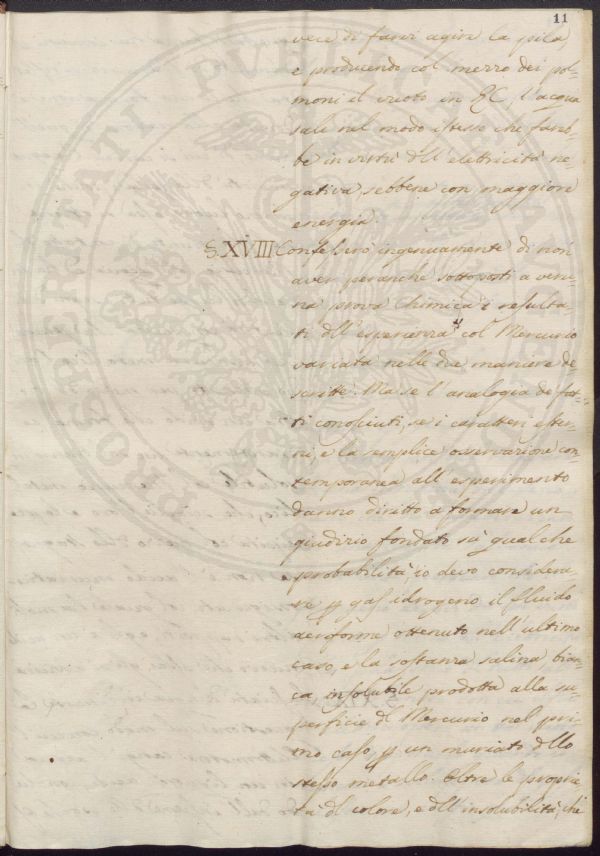 11
vece di farvi agire la pila,
e producendo col mezzo dei pol-
moni il vuoto in EC, l'acqua
salì nel modo istesso che fareb-
be in virtù dell'elettricità ne-
gativa, sebbene con maggiore
energia.
§.XVIII Confesserò ingenuamente di non
aver peranche sottoposti a veru-
na prova chimica i resulta-
ti dll'esperienza col Mercurio
variata nelle due maniere de-
scritte. Ma se l'analogia de' fat-
ti conosciuti, se i caratteri ester-
ni, e la semplice osservazione con-
temporanea all'esperimento
danno diritto a formare un
giudizio fondato sù qualche
probabilità io devo considera-
re p gas idrogeno il fluido
aeriforme ottenuto nell'ultimo
caso, e la sostanza salina bian-
ca insolubile prodotta alla su-
perficie dl Mercurio nel pri-
mo caso, p un muriato dllo
stesso metallo. Oltre le proprie-
tà dl colore, e dll'insolubilità, chè
PROSPERITATI PUBLICAE AUGENDAE